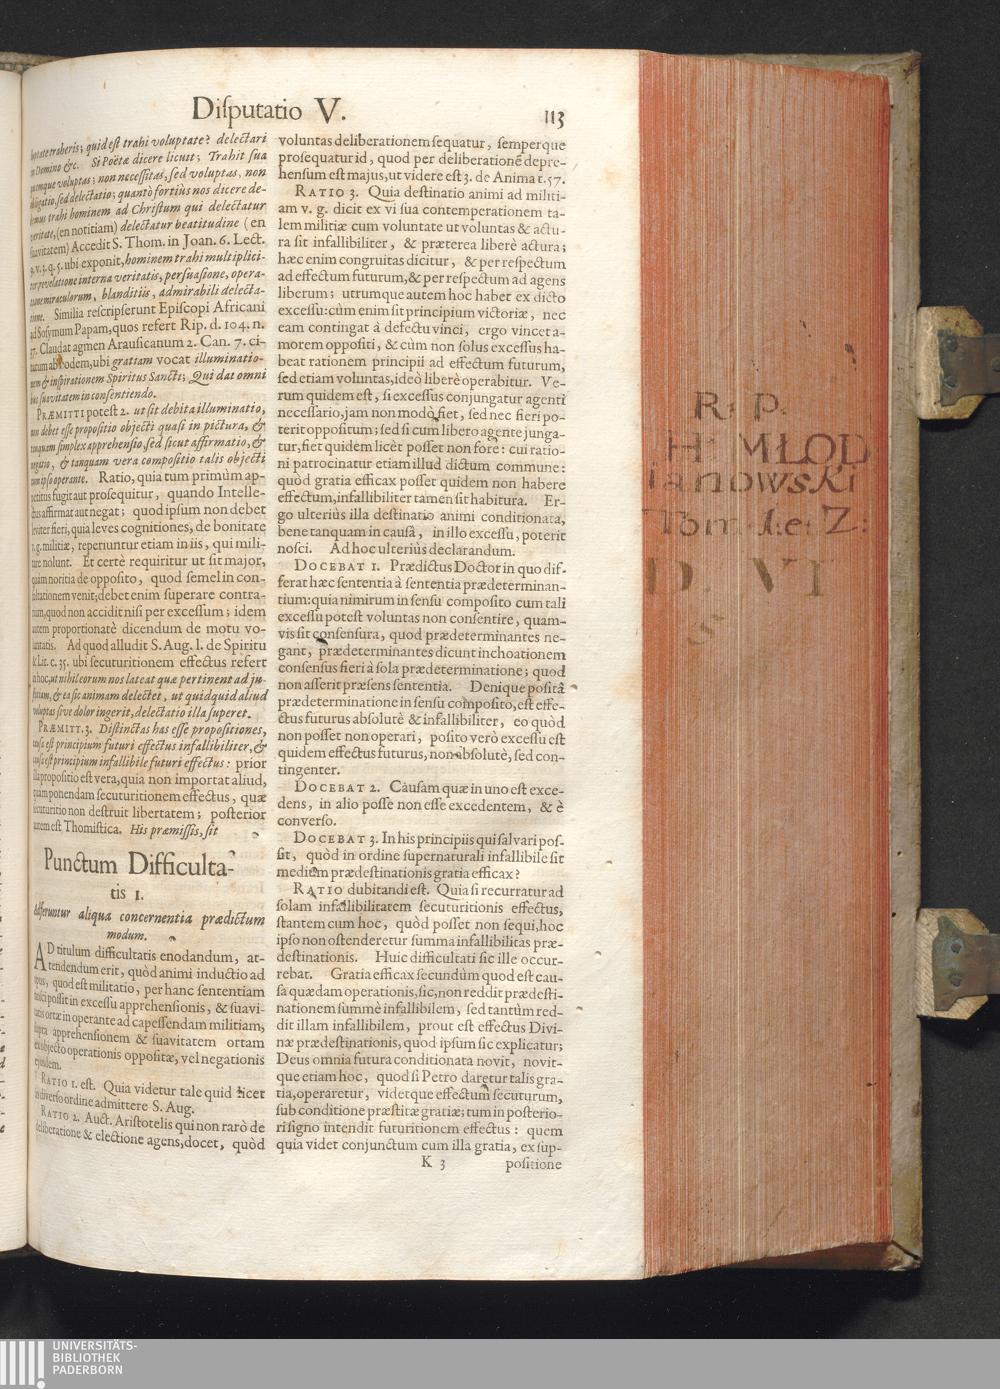 Disputatio V. 113
luptate traheris; quid est trahi voluptate? delectari
in Domino &c. Si Poëtæ dicere licuit; Trahit sua
quemque voluptas; non necessitas, sed voluptas, non
obligatio, sed delectatio; quantò fortiùs nos dicere de-
bemus trahi hominem ad Christum qui delectatur
veritate, (en notitiam) delectatur beatitudine (en
suavitatem) Accedit S. Thom. in Joan. 6. Lect.
ubi exponit, hominem trahi multiplici-
ter, revelatione interna veritatis, persuasione, opera-
tione miraculorum, blanditiis, admirabili delecta-
tione. Similia rescripserunt Episcopi Africani
ad Sosymum Papam, quos refert Rip. d. 104. n.
37. Claudat agmen Arausicanum 2. Can. 7. ci-
tatum ab eodem, ubi gratiam vocat illuminatio-
nem & inspirationem Spiritus Sancti; Qui dat omni
bus suavitatem in consentiendo.
PRÆMITTI potest 2. ut sit debita illuminatio,
non debet esse propositio objecti quasi in pictura, &
tanquam simplex apprehensio, sed sicut affirmatio, &
negatio, & tanquam vera compositio talis objecti
cum ipso operante. Ratio, quia tum primùm ap-
petitus fugit aut prosequitur, quando Intelle-
ctus affirmat aut negat; quod ipsum non debet
leviter fieri, quia leves cognitiones, de bonitate
v. g. militiæ, reperiuntur etiam in iis, qui mili-
tare nolunt. Et certè requiritur ut sit major,
quàm notitia de opposito, quod semel in con-
sultationem venit; debet enim superare contra-
rium, quod non accidit nisi per excessum; idem
autem proportionatè dicendum de motu vo-
luntatis. Ad quod alludit S. Aug. l. de Spiritu
& Lit. c. 35. ubi secuturitionem effectus refert
in hoc, ut nihil eorum nos lateat quæ pertinent ad ju-
stitiam, & ea sic animam delectet, ut quidquid aliud
voluptas sive dolor ingerit, delectatio illa superet.
PRÆMITT. 3. Distinctas has esse propositiones,
causa est principium futuri effectus infallibiliter, &
causa est principium infallibile futuri effectus: prior
illa propositio est vera, quia non importat aliud,
quam ponendam secuturitionem effectus, quæ
secuturitio non destruit libertatem; posterior
autem est Thomistica. His præmissis, sit
Punctum Difficulta-
tis I.
Afferuntur aliqua concernentia prædictum
modum.
AD titulum difficultatis enodandum, at-
tendendum erit, quòd animi inductio ad
opus, quod est militatio, per hanc sententiam
nosci possit in excessu apprehensionis, & suavi-
tatis ortæ in operante ad capessendam militiam,
supra apprehensionem & suavitatem ortam
ex objecto operationis oppositæ, vel negationis
ejusdem.
RATIO 1. est. Quia videtur tale quid licet
in diverso ordine admittere S. Aug.
RATIO 2. Auct. Aristotelis qui non rarò de
deliberatione & electione agens, docet, quòd
voluntas deliberationem sequatur, semperque
prosequatur id, quod per deliberationē depre-
hensum est majus, ut videre est 3. de Anima t. 57.
RATIO 3. Quia destinatio animi ad militi-
am v. g. dicit ex vi sua contemperationem ta-
lem militiæ cum voluntate ut voluntas & actu-
ra sit infallibiliter, & præterea liberè actura;
hæc enim congruitas dicitur, & per respectum
ad effectum futurum, & per respectum ad agens
liberum; utrumque autem hoc habet ex dicto
excessu: cùm enim sit principium victoriæ, nec
eam contingat à defectu vinci, ergo vincet a-
morem oppositi, & cùm non solus excessus ha-
beat rationem principii ad effectum futurum,
sed etiam voluntas, ideò liberè operabitur. Ve-
rum quidem est, si excessus conjungatur agenti
necessario, jam non modò fiet, sed nec fieri po-
terit oppositum; sed si cum libero agente junga-
tur, fiet quidem licèt posset non fore: cui ratio-
ni patrocinatur etiam illud dictum commune:
quòd gratia efficax posset quidem non habere
effectum, infallibiliter tamen sit habitura. Er-
go ulteriùs illa destinatio animi conditionata,
bene tanquam in causâ, in illo excessu, poterit
nosci. Ad hoc ulteriùs declarandum.
DOCEBAT 1. Prædictus Doctor in quo dif-
ferat hæc sententia à sententia prædeterminan-
tium: quia nimirum in sensu composito cum tali
excessu potest voluntas non consentire, quam-
vis sit consensura, quod prædeterminantes ne-
gant; prædeterminantes dicunt inchoationem
consensus fieri à sola prædeterminatione; quod
non asserit præsens sententia. Denique positâ
prædeterminatione in sensu còmposito, est effe-
ctus futurus absolutè & infallibiliter, eo quòd
non posset non operari, posito verò excessu est
quidem effectus futurus, non absolutè, sed con-
tingenter.
DOCEBAT 2. Causam quæ in uno est exce-
dens, in alio posse non esse excedentem, & è
converso.
DOCEBAT 3. In his principiis qui salvari pos-
sit, quòd in ordine supernaturali infallibile sit
medium prædestinationis gratia efficax?
RATIO dubitandi est. Quia si recurratur ad
solam infallibilitatem secuturitionis effectus,
stantem cum hoc, quòd posset non sequi, hoc
ipso non ostenderetur summa infallibilitas præ-
destinationis. Huic difficultati sic ille occur-
rebat. Gratia efficax secundùm quod est cau-
sa quædam operationis, sic, non reddit prædesti-
nationem summè infallibilem, sed tantùm red-
dit illam infallibilem, prout est effectus Divi-
næ prædestinationis, quod ipsum sic explicatur;
Deus omnia futura conditionata novit, novit-
que etiam hoc, quod si Petro daretur talis gra-
tia, operaretur, videtque effectum secuturum,
sub conditione præstitæ gratiæ; tum in posterio-
ri signo intendit futuritionem effectus: quem
quia videt conjunctum cum illa gratia, ex sup-
K 3 positione
R. P.
MŁOD
ianowski
Tom 1. et 2:
D. VI
UNIVERSITÄTS-
BIBLIOTHEK
PADERBORN